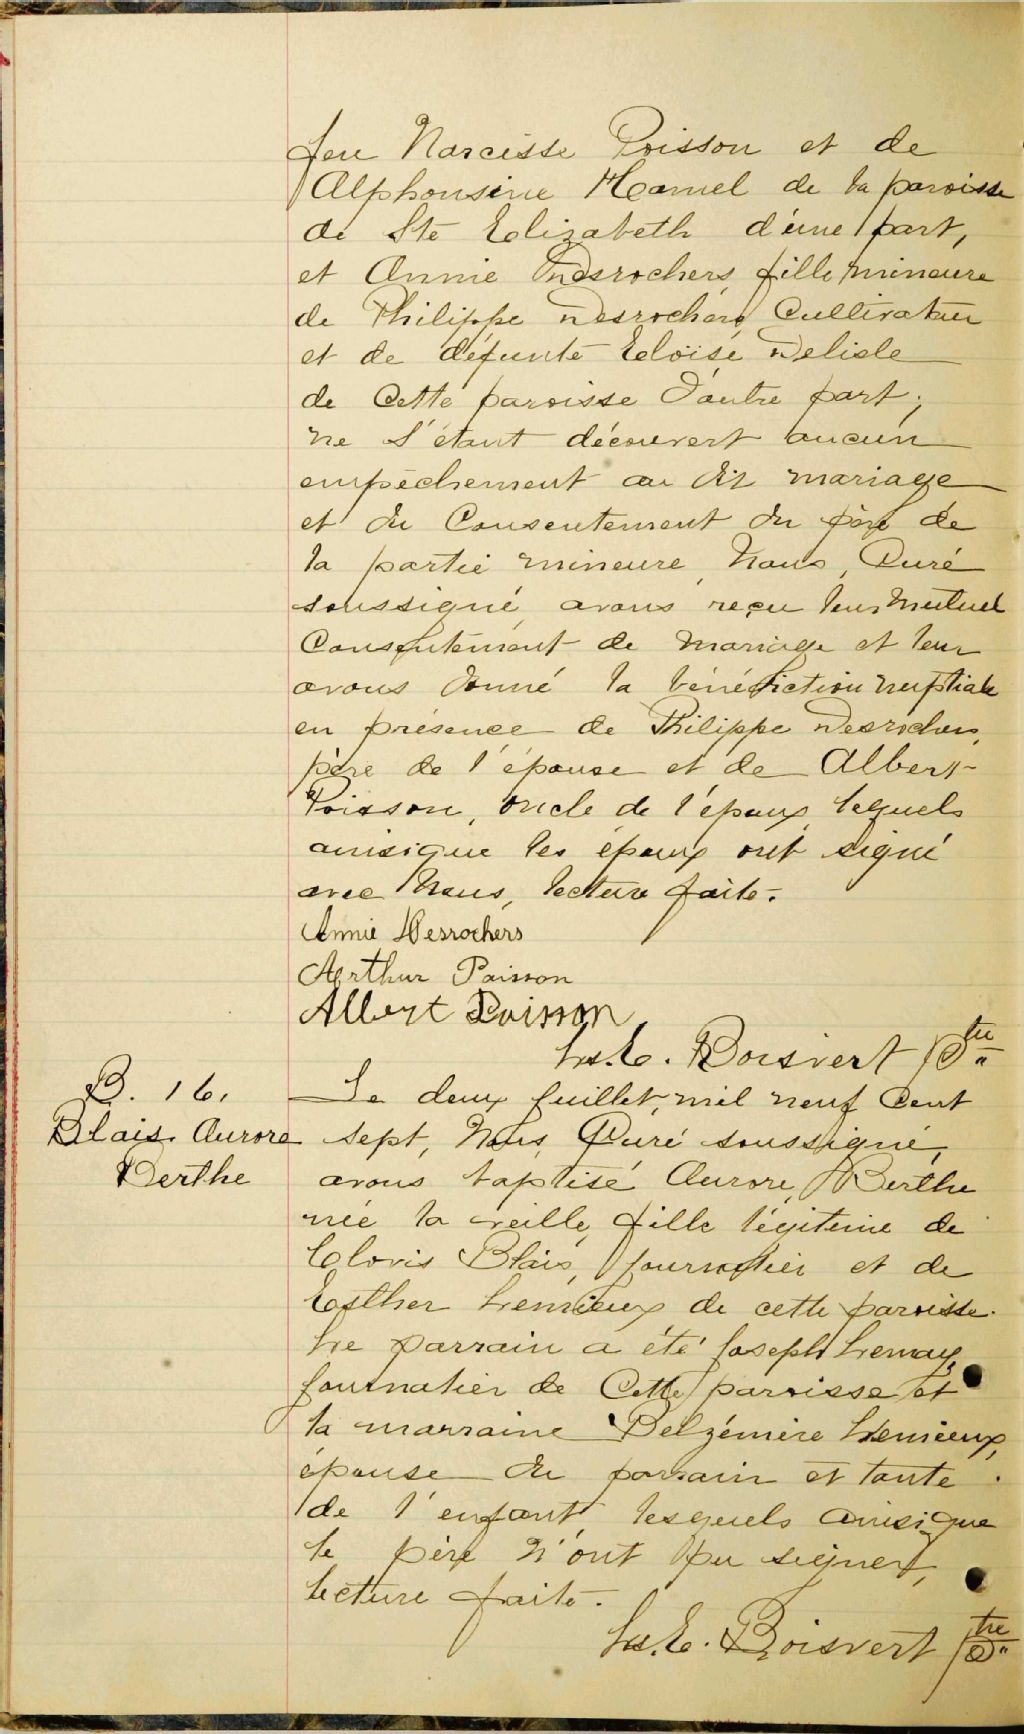 feu Narcisse Poisson et de
Alphonsine Hamel de la paroisse
de Ste Elizabeth d'une part,
et Annie Desrochers, fille mineure
de Philippe Desrochers, Cultivateur
et de défunte Eloïse Delisle
de cette paroisse d'autre part;
ne s'étant découvert aucun
empêchement au dit mariage
et du Consentement du père de
la partie mineure, Nous, Curé
soussigné, avons reçu leur mutuel
Consentement de mariage et leur
avons donné la bénédiction nuptiale
en présence de Philippe Desrochers,
père de l'épouse et de Albert
Poisson, oncle de l'époux, lesquels
ainsique les époux ont signé
avec Nous, lecture faite.
Annie Desrochers
Arthur Poisson
Albert Poisson
Ls. E. Boisvert Ptre
B. 16.
Blais. Aurore
Berthe
Le deux Juillet, mil neuf Cent
sept, Nous, Curé soussigné,
avons baptisé Aurore, Berthe
née la veille, fille légitime de
Clovis Blais, journalier et de
Esther Lemieux de cette paroisse.
Le parrain a été Joseph Lemay,
journalier de Cette paroisse et
la marraine Delzémire Lemieux,
épouse du parrain et tante
de l'enfant, lesquels ainsique
le père n'ont pu signer,
lecture faite.
Ls. E. Boisvert Ptre